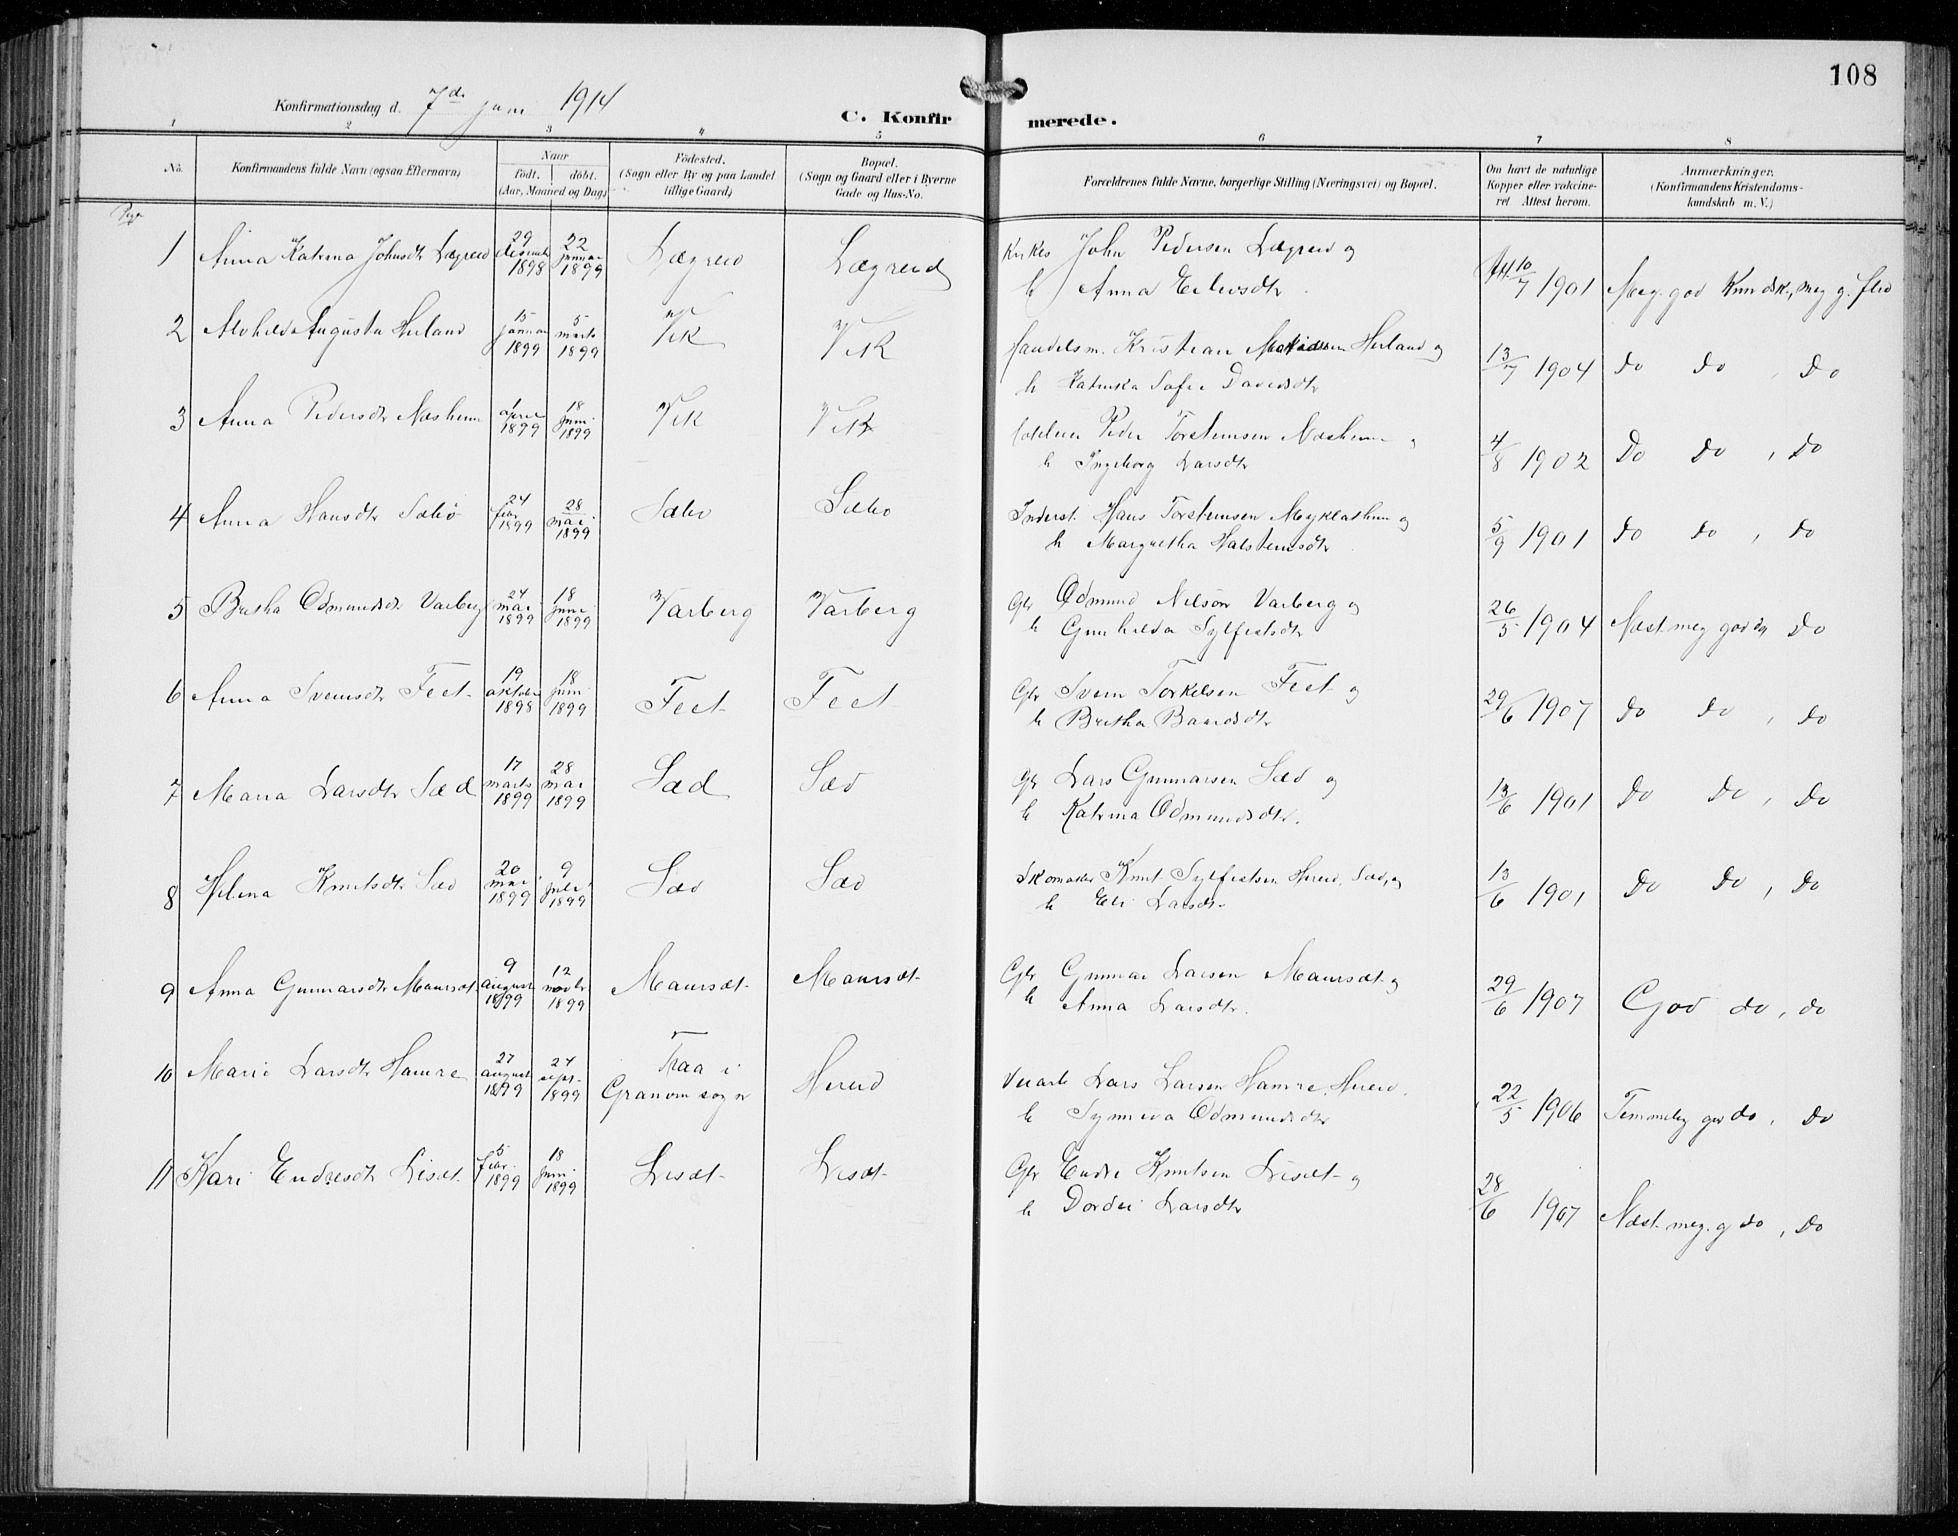 108
Konfirmationsdag d. 7de juni 1914
C. Konfirmerede.
1 2 3 4 5 6 7 8
No.
Konfirmandens fulde Navn (ogsaa Efternavn)
Naar
født. døbt.
(Aar, Maaned og Dag)
Födested.
(Sogn eller By og paa Landet
tillige Gaard)
Bopæl.
(Sogn og Gaard eller i Byerne
Gade og Hus-No.
Forældrenes fulde Navne, borgerlige Stilling (Næringsvei) og Bopæl.
Om havt de naturlige
Kopper eller vakcine-
ret Attest herom.
Anmærkninger.
(Konfirmandens Kristendoms-
kundskab m. V.)
1 Anna Katrina Johnsdtr Lægreid 29 desembr 1898 22 januar 1899 Lægreid Lægreid Kirkes John Pedersen Lægreid og
h Anna Eilevsdtr 10/7 1901 Meg. god Kundsk., meg g. flid
2 Alvhild Augusta Herland 15 januar 1899 5 marts 1899 Vik Vik Handelsm. Kristian Herland og
h Katinka Sofie Davidsdtr 13/7 1904 do do, do
3 Anna Pedersdtr Næsheim 1 april 1899 18 juni 1899 Vik Vik Peder Torsteinsen Næsheim og
h Ingeborg Larsdtr 4/8 1902 Do do, do
4 Anna Hansdtr Sæbø 24 febr 1899 28 mai 1899 Sæbø Sæbø Inderst. Hans Torsteinsen Myklathun og
h Margretha Halsteinsdtr 5/9 1901 do do, do
5 Britha Odmundsdtr Varberg 24 mai 1899 18 juni 1899 Varberg Varberg Gbr Odmund Nilson Varberg og
h Gunhilda Sylfestsdtr 26/5 1904 Næst meg god do
6 Anna Sveinsdtr Feet 19 oktober 1898 18 juni 1899 Feet Feet Gbr Svein Torkelsen Feet og
h Britha Baardsdtr 29/6 1907 do do, do
7 Maria Larsdtr Sæd 17 marts 1899 28 mai 1899 Sæd Sæd Gbr Lars Gunnarsen Sæd og
h Katrina Odmundsdtr. 13/6 1901 do do, do
8 Helena Knutsdtr Sæd 20 mai 1899 9 juli 1899 Sæd Sæd Skomaker Knut Sylfestsen Hereid, Sæd, og
h Eli Larsdtr 13/6 1901 do do, do
9 Anna Gunnarsdtr Maursæt 9 august 1899 12 novbr 1899 Maursæt Maursæt Gbr Gunnar Larsen Maursæt og
h Anna Larsdtr. 29/6 1907 God do, do
10 Mari Larsdtr Hamre 27 august 1899 24 sept. 1899 Traa i
Granvin sogn Hereid Veiarb Lars Larsen Hamre, Hereid.
h Synneva Odmundsdtr 22/5 1906 Temmelig god do, do
11 Kari Endresdtr Lisæt 5 febr. 1899 18 juni 1899 Lisæt Lisæt Gbr Endre Knutsen Lisæt og
h Dordei Larsdtr 28/6 1907 Næst. meg. g do, do